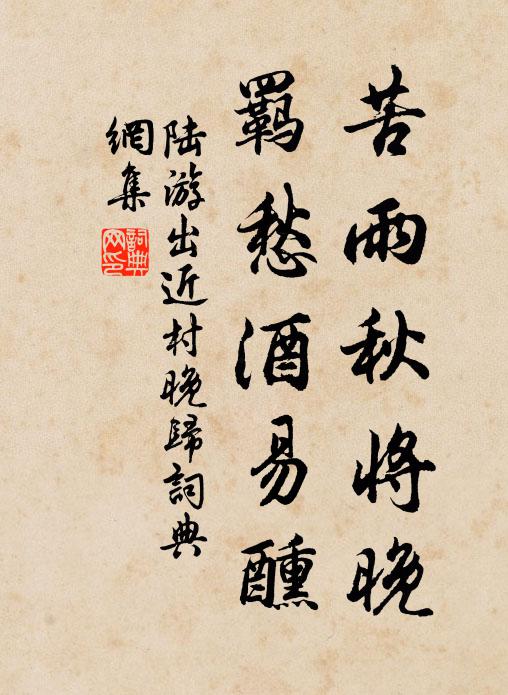 苦雨秋將晚
羁愁酒易醺
陆游出近村晚歸詞典
網集
詞典
网印